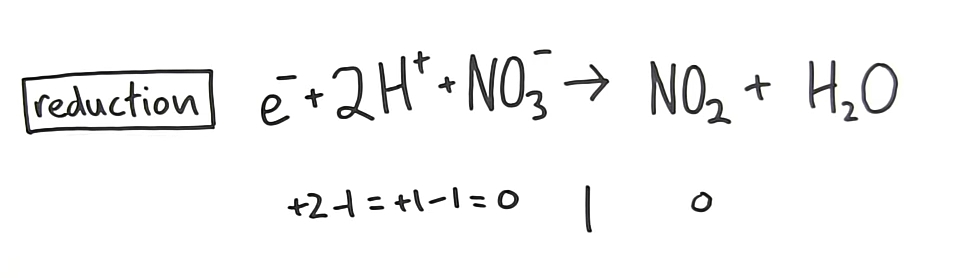 reduction e⁻ + 2H⁺ + NO₃⁻ → NO₂ + H₂O
+2-1 = +1-1 = 0 | 0